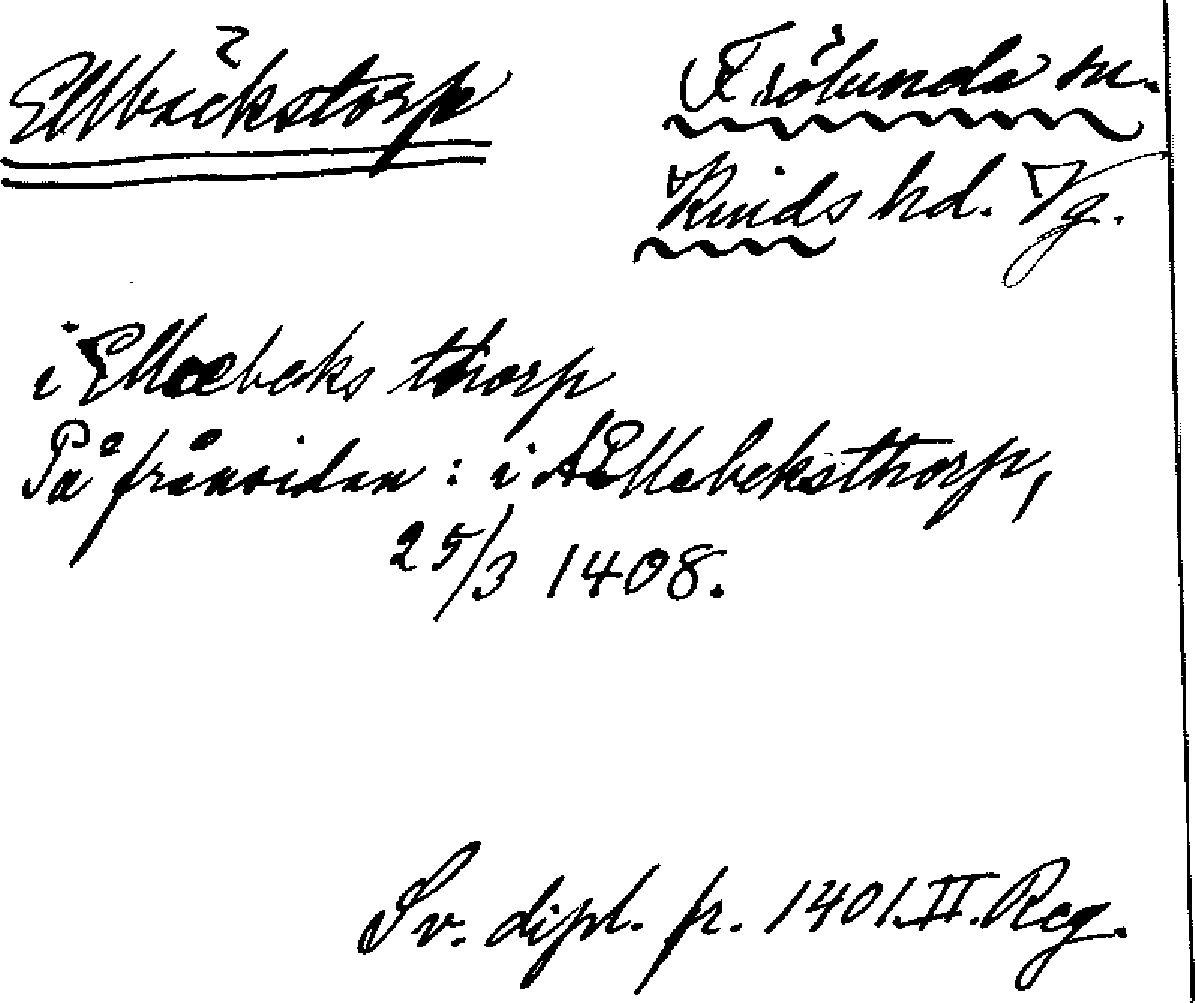 Ellbäckstorp
Frölunda sn.
Kinds hd. Vg.
i Ellæbeks thorp
På frånsidan: i AEllabeksthorp,
25/3 1408.
Sv. dipl. fr. 1401. II. Reg.